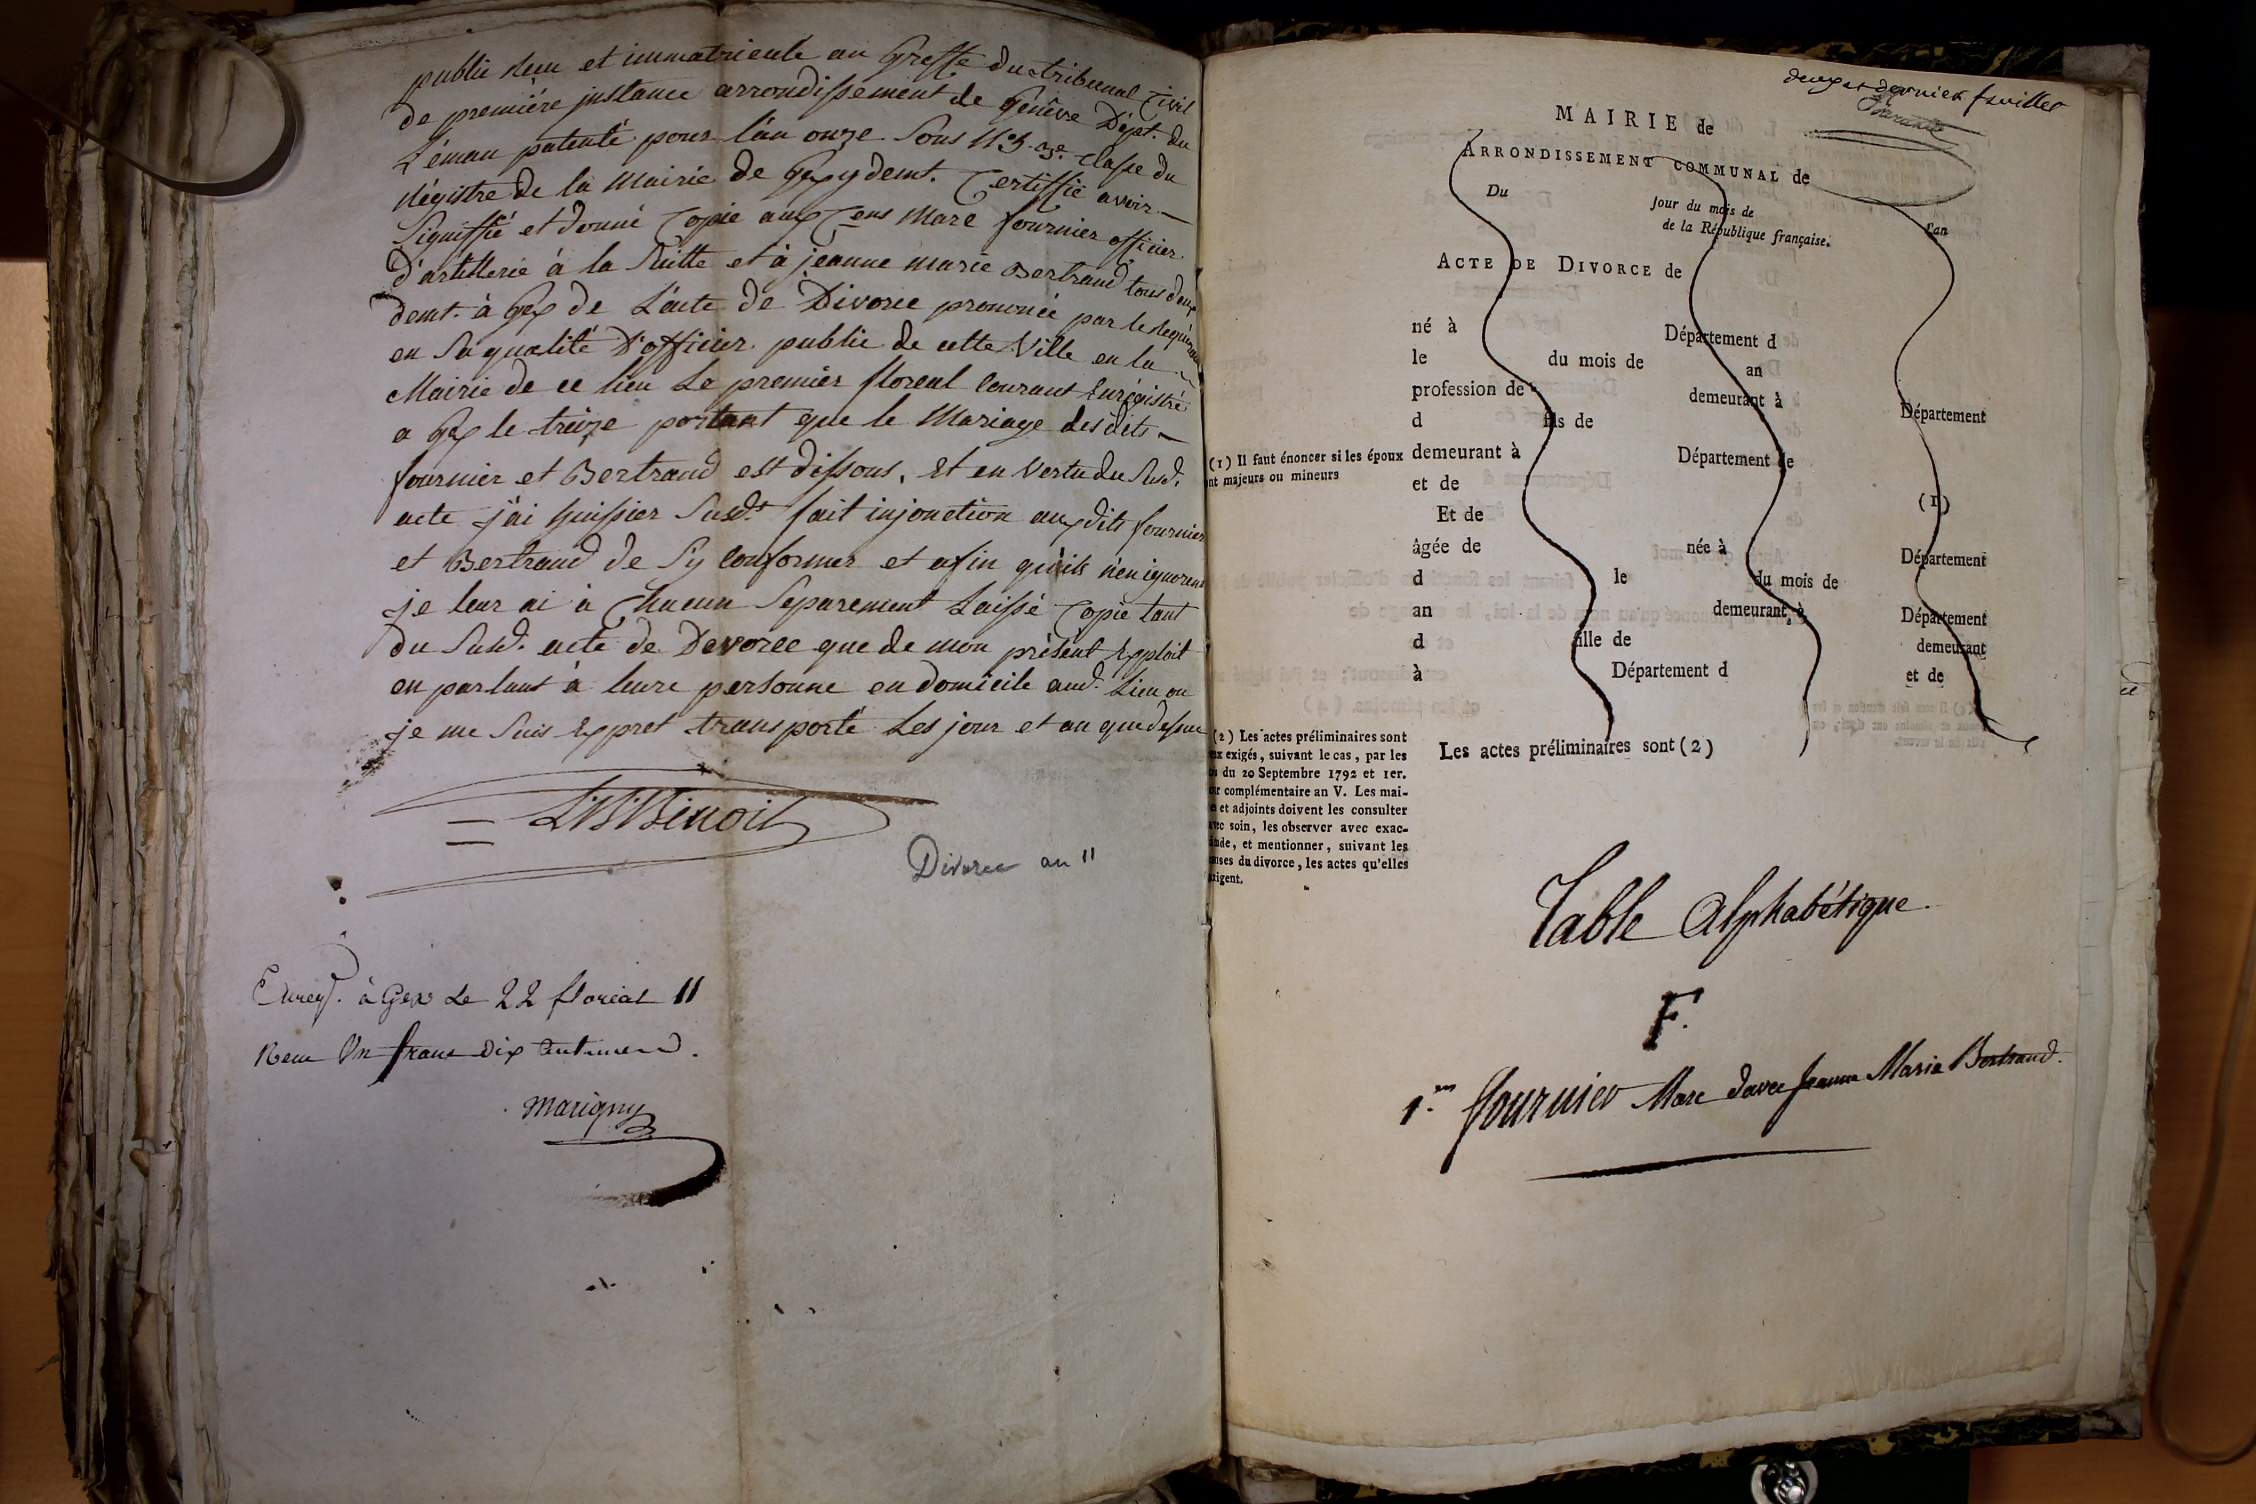 public reçu et immatriculé au Greffe du tribunal Civil
de première instance arrondissement de Genève Dépt. du
Léman patenté pour l'an onze. Sous N° 5. 3e. Classe du
Régistre de la Mairie de Gex y demt. Certiffie avoir
Signiffié et donné Copie aux Cens Marc fournier officier
d'artillerie à la Suitte et à jeanne marie Bertrand tous deux
demt. à Gex de L'acte de Divorce prononcé par le Requérant
en Sa qualité D'officier public de cette Ville en la
Mairie de ce lieu Le premier floreal Courant Enrégistré
a Gex le treize portant que le Mariage des dits
fournier et Bertrand est dissous, Et en Vertu du Susd.
acte j'ai huissier Susdt. fait injonction aux dits fournier
et Bertrand de S'y Conformer et afin qu'ils n'en ignorent
je leur ai à Chacun Séparement Laissé Copie tant
du Susd. acte de Devorce que de mon présent Exploit
en parlant à leurs personne en domicile aud. Lieu ou
je me Suis Expret transporté Les jour et an que dessus
LBBenoit
Divorce an 11
Enreg. à Gex Le 22 floréal 11
Recu Un franc dix Centimes
Marigny
deux et dernier feuillet
MAIRIE de
ARRONDISSEMENT COMMUNAL de
Du jour du mois de l'an
de la République française.
ACTE DE DIVORCE de
né à Département d
le du mois de an
profession de demeurant à Département
d fils de
(1) Il faut énoncer si les époux
ont majeurs ou mineurs
demeurant à Département de
et de (1)
Et de
âgée de née à Département
d le du mois de
an demeurant à Département
d fille de demeurant
à Département d et de
Les actes préliminaires sont (2)
(2) Les actes préliminaires sont
ux exigés, suivant le cas, par les
s du 20 Septembre 1792 et 1er.
ur complémentaire an V. Les mai-
s et adjoints doivent les consulter
vec soin, les observer avec exac-
tude, et mentionner, suivant les
uses du divorce, les actes qu'elles
xigent.
Table Alphabétique.
F.
1.er fournier Marc davec Jeanne Marie Bertrand.